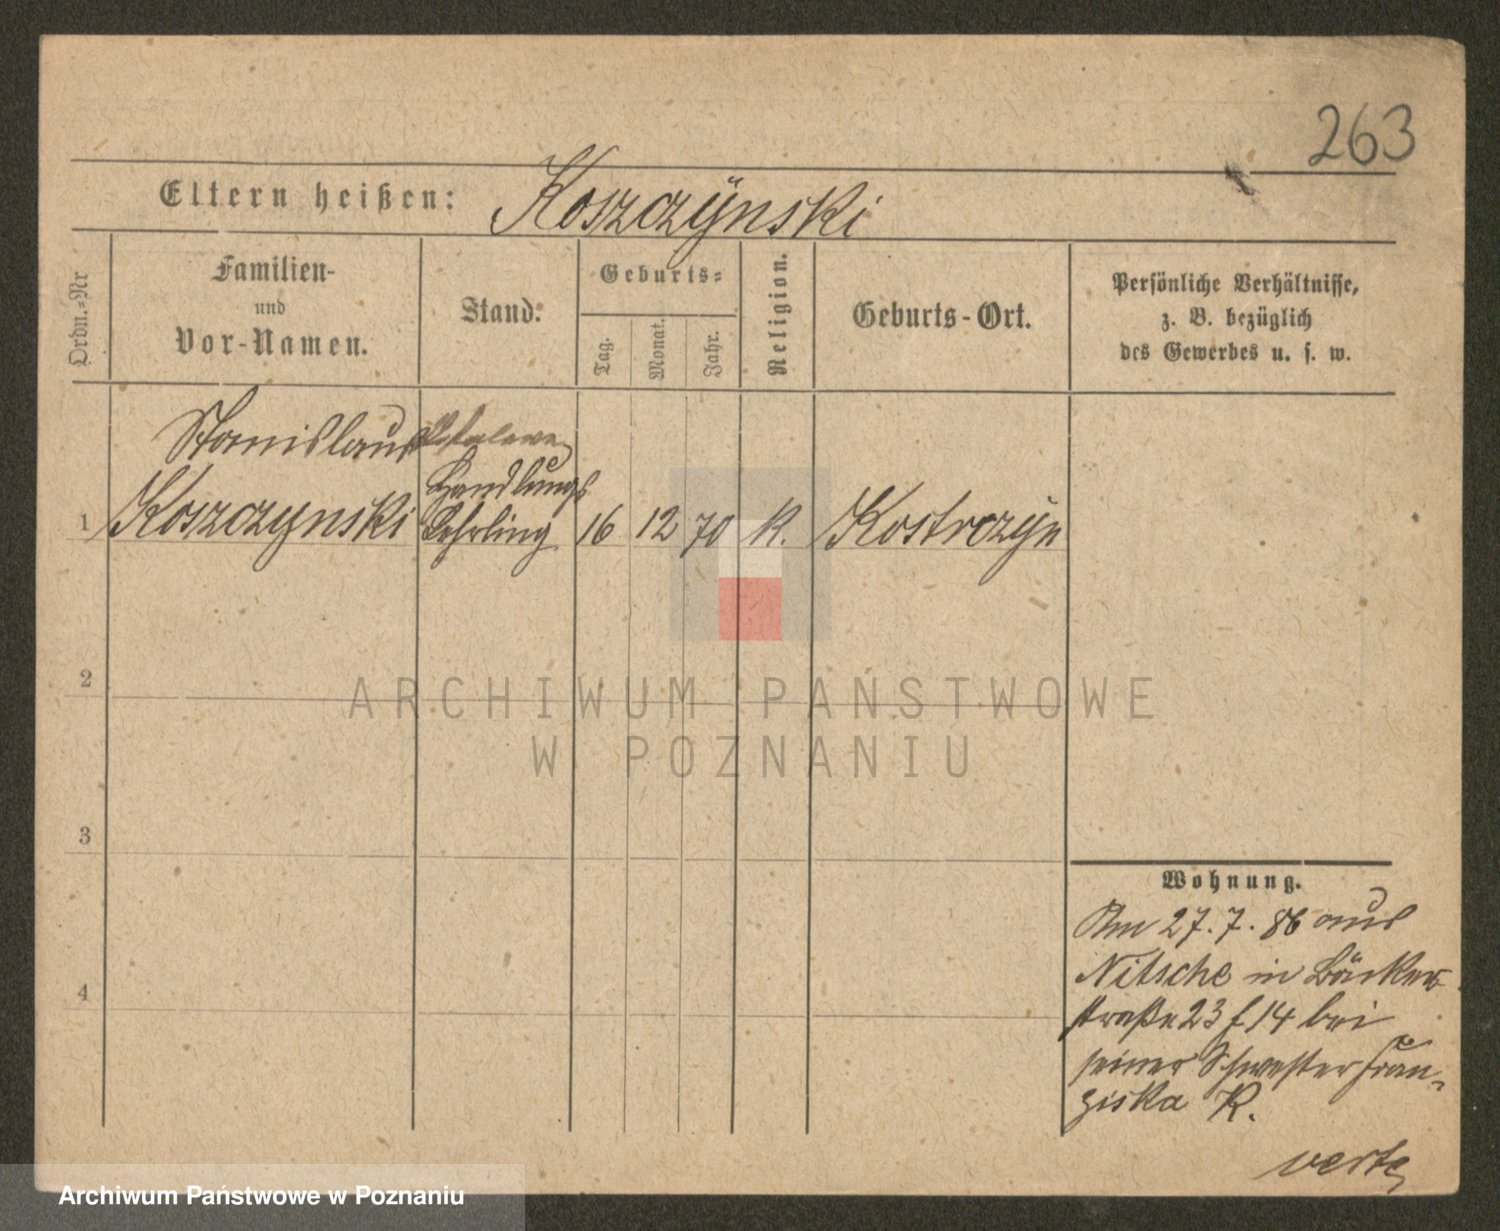 263
Eltern heißen: Koszczÿnski
Ordn.-Nr
Familien-
und
Vor-Namen.
Stand.
Geburts-
Tag.
Monat.
Jahr.
Religion.
Geburts-Ort.
Persönliche Verhältnisse,
z. B. bezüglich
des Gewerbes u. s. w.
Stanislaus
Handlungs
1 Koszczynski Lehrling 16 12 70 K. Kostrczÿn
2
ARCHIWUM PAŃSTWOWE
W POZNANIU
3
4
Wohnung.
Am 27. 7. 86 aus
Nitsche in Bäcker
straße 23 f 14 bei
seiner Schwester Fran-
ziska K.
verte
Archiwum Państwowe w Poznaniu